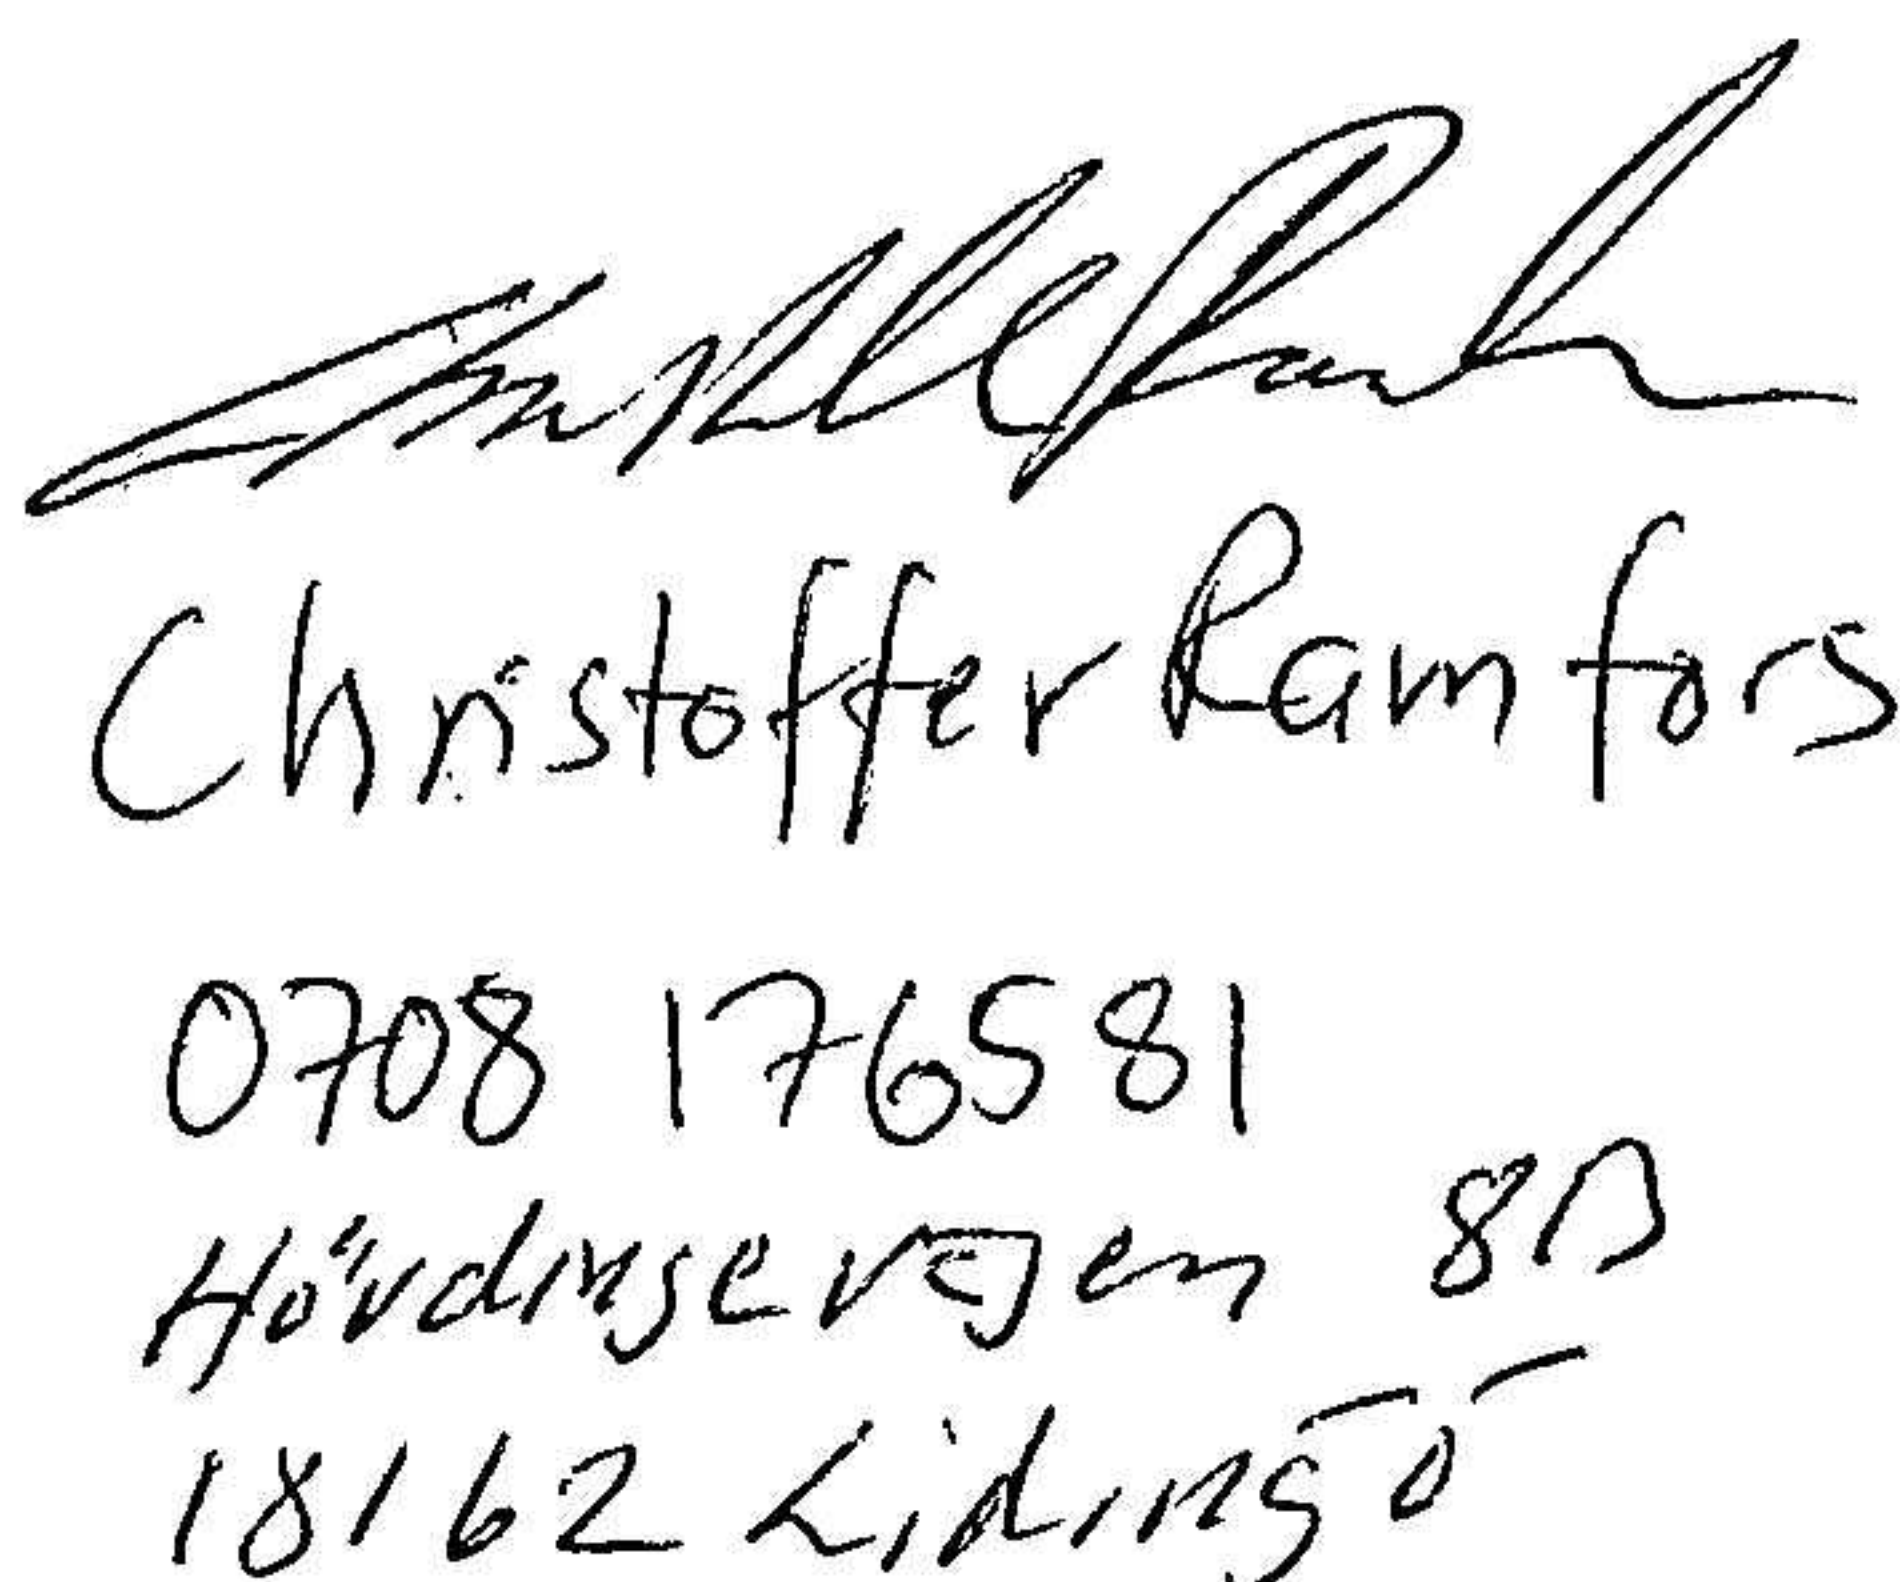 Christoffer Ramfors
0708 176581
Hövdingevägen 8B
18162 Lidingö